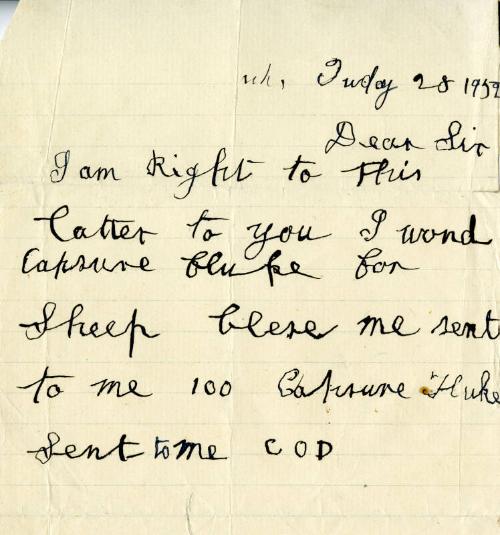 Tuday 28 1959
Dear Sir
I am Right to This
Latter to you I wond
Capsure bluke for
Sheep blese me sent
to me 100 Capsure Fluke
Sent to me COD